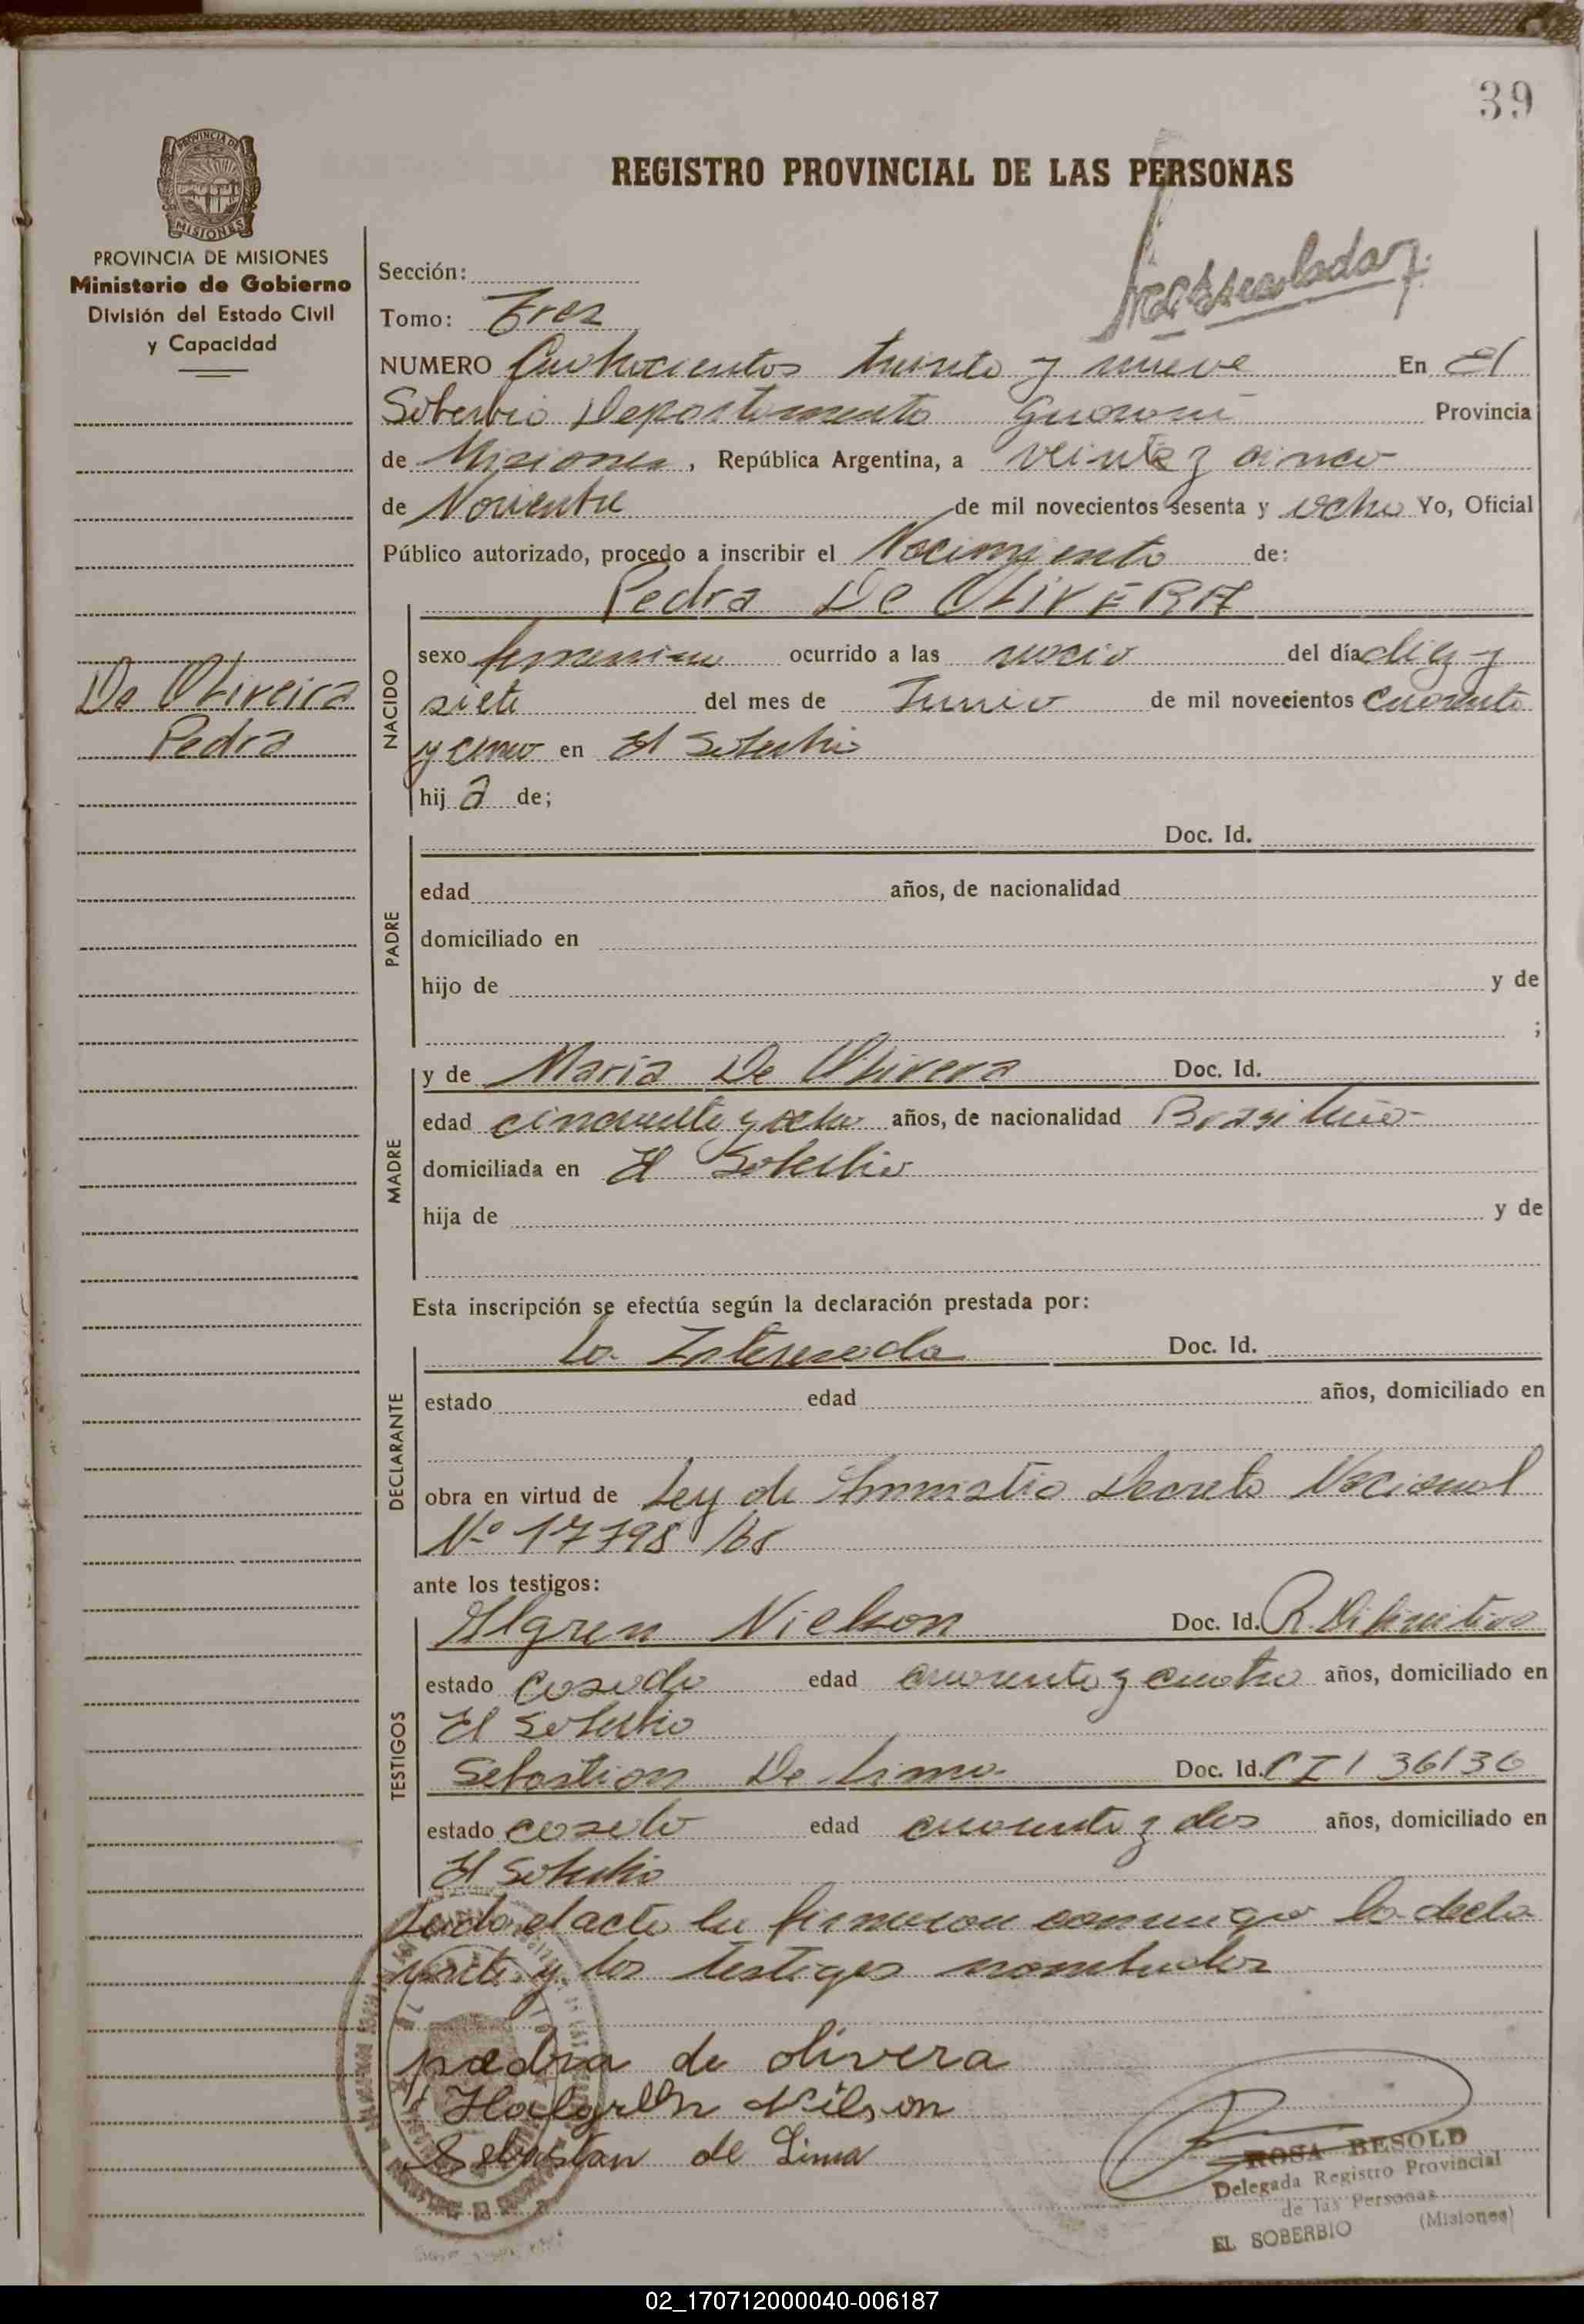 39
PROVINCIA DE
MISIONES
REGISTRO PROVINCIAL DE LAS PERSONAS
PROVINCIA DE MISIONES
Ministerio de Gobierno
División del Estado Civil
y Capacidad
Sección:
Tomo: Tres
NUMERO Cuatrocientos treinta y nueve En El
Soberbio Departamento Guarani Provincia
de Misiones, República Argentina, a veinte y cinco
de Noviembre de mil novecientos sesenta y ocho Yo, Oficial
Público autorizado, procedo a inscribir el Nacimiento de:
Pedra De OLIVERA
De Oliveira
Pedra
NACIDO
sexo femenino ocurrido a las del día diez y
siete del mes de Junio de mil novecientos cuarenta
y cinco en El Soberbio
hij a de;
PADRE
Doc. Id.
edad años, de nacionalidad
domiciliado en
hijo de y de
;
MADRE
y de Maria De Olivera Doc. Id.
edad cincuenta y ocho años, de nacionalidad Brasileña
domiciliada en El Soberbio
hija de y de
Esta inscripción se efectúa según la declaración prestada por:
DECLARANTE
La Interesada Doc. Id.
estado edad años, domiciliado en
obra en virtud de Ley de Amnistia Decreto Nacional
Nº 17798/68
ante los testigos:
TESTIGOS
Algren Nielson Doc. Id. R. Difinitivo
estado casado edad cuarenta y cuatro años, domiciliado en
El Soberbio
Sebastian De Lima Doc. Id. CI 136136
estado casado edad cuarenta y dos años, domiciliado en
El Soberbio
Leido el acta la firmaron conmigo la decla
rante y los testigos nombrados
pedra de olivera
Halgren Nilson
Sebastian de Lima
ROSA BESOLD
Delegada Registro Provincial
de las Personas
EL SOBERBIO (Misiones)
02_170712000040-006187